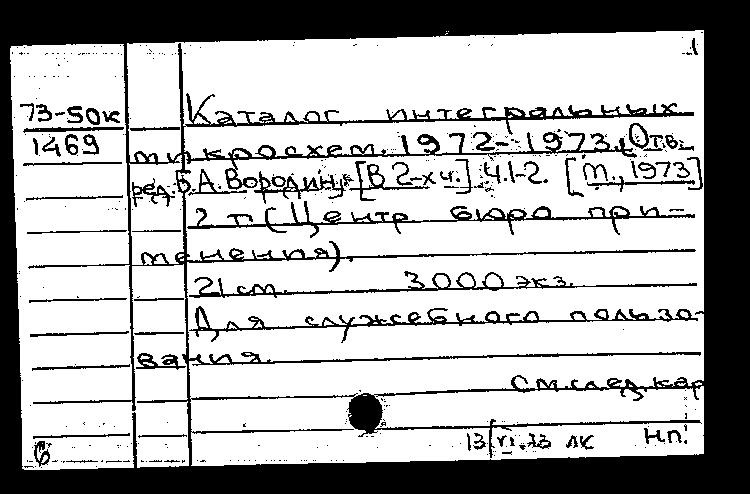 1
73-50к
1469
Каталог интегральных
микросхем. 1972-1973. [Отв.
ред. Б.А. Бородин]. [В 2-х ч.] Ч.1-2. [М., 1973]
2 т (Центр бюро при-
менения).
21 см. 3000 экз.
Для служебного пользо-
вания.
См. след. кар
13/VI.73 ЛК Нп.
6